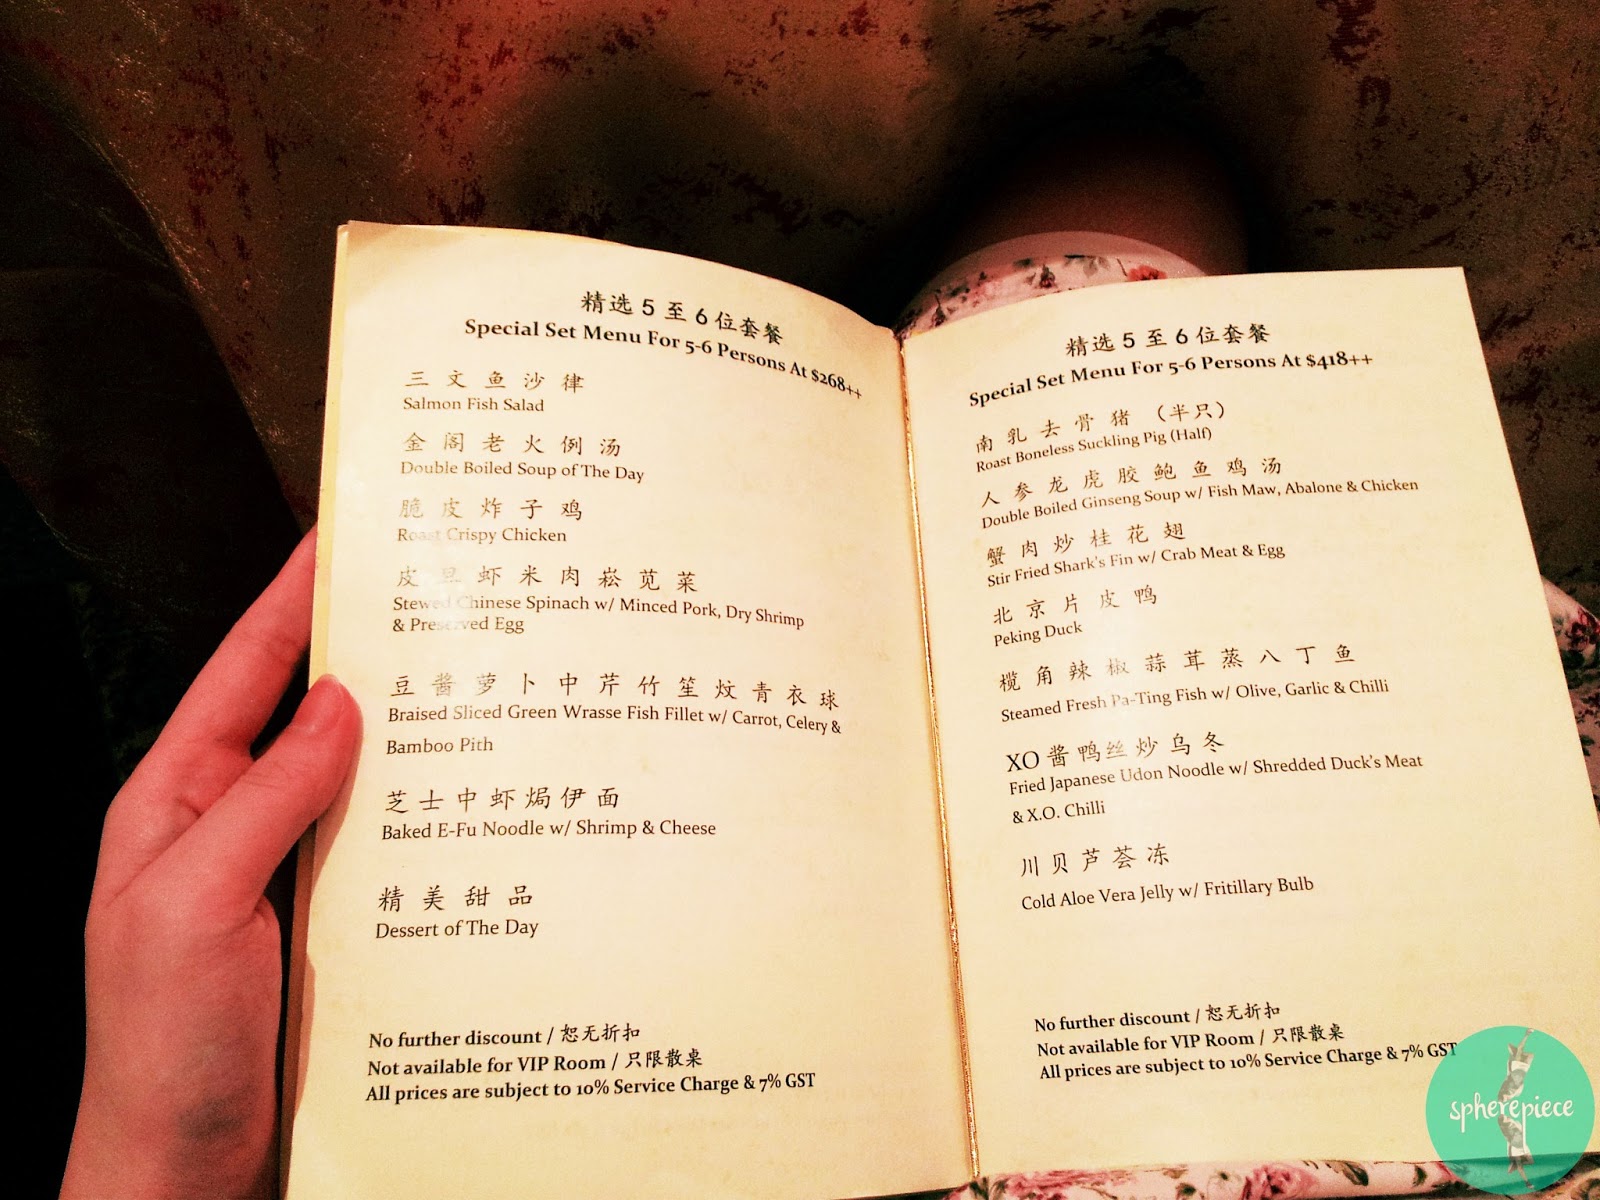 精选 5 至 6 位套餐
Special Set Menu For 5-6 Persons At $268++
三文鱼沙律
Salmon Fish Salad
金阁老火例汤
Double Boiled Soup of The Day
脆皮炸子鸡
Roast Crispy Chicken
皮旦虾米肉崧苋菜
Stewed Chinese Spinach w/ Minced Pork, Dry Shrimp
& Preserved Egg
豆酱萝卜中芹竹笙炆青衣球
Braised Sliced Green Wrasse Fish Fillet w/ Carrot, Celery &
Bamboo Pith
芝士中虾焗伊面
Baked E-Fu Noodle w/ Shrimp & Cheese
精美甜品
Dessert of The Day
No further discount / 恕无折扣
Not available for VIP Room / 只限散桌
All prices are subject to 10% Service Charge & 7% GST
精选 5 至 6 位套餐
Special Set Menu For 5-6 Persons At $418++
南乳去骨猪（半只）
Roast Boneless Suckling Pig (Half)
人参龙虎胶鲍鱼鸡汤
Double Boiled Ginseng Soup w/ Fish Maw, Abalone & Chicken
蟹肉炒桂花翅
Stir Fried Shark's Fin w/ Crab Meat & Egg
北京片皮鸭
Peking Duck
榄角辣椒蒜茸蒸八丁鱼
Steamed Fresh Pa-Ting Fish w/ Olive, Garlic & Chilli
XO 酱鸭丝炒乌冬
Fried Japanese Udon Noodle w/ Shredded Duck's Meat
& X.O. Chilli
川贝芦荟冻
Cold Aloe Vera Jelly w/ Fritillary Bulb
No further discount / 恕无折扣
Not available for VIP Room / 只限散桌
All prices are subject to 10% Service Charge & 7% GST
spherepiece